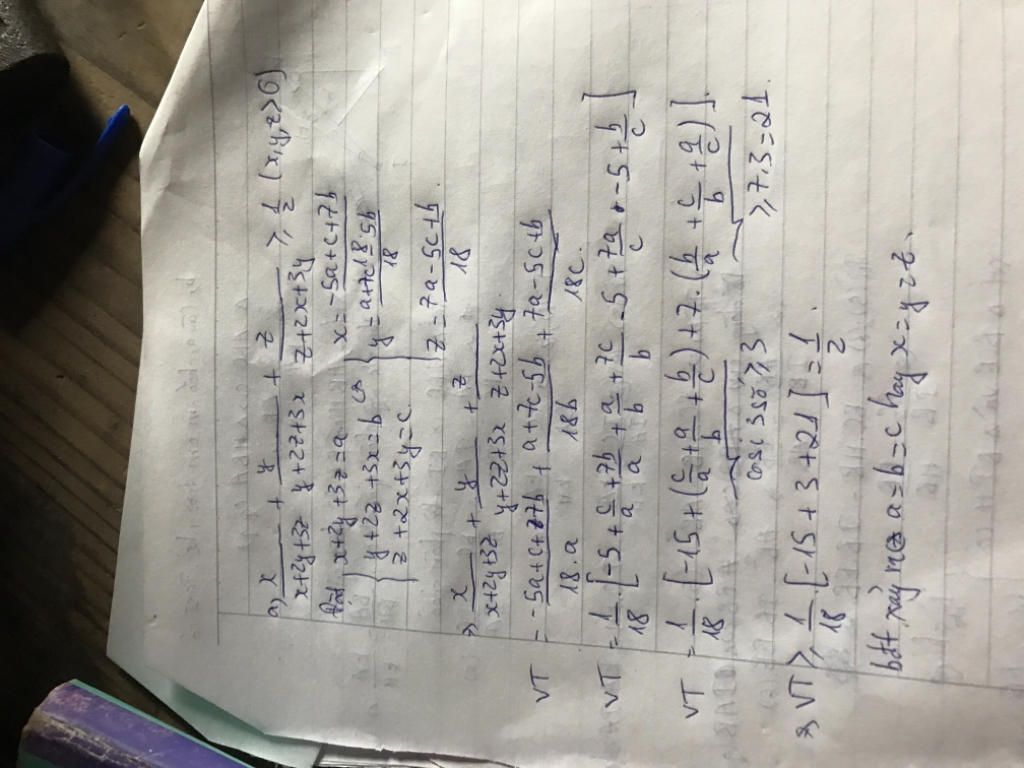 a) x/(x+2y+3z) + y/(y+2z+3x) + z/(z+2x+3y) ≥ 1/2 (x,y,z>0)
Đặt { x+2y+3z=a
y+2z+3x=b
z+2x+3y=c
⇔ { x = (-5a+c+7b)/18
y = (a+7c-5b)/18
z = (7a-5c+b)/18
⇒ x/(x+2y+3z) + y/(y+2z+3x) + z/(z+2x+3y)
VT = (-5a+c+7b)/(18.a) + (a+7c-5b)/(18b) + (7a-5c+b)/(18c).
VT = 1/18 . [-5 + c/a + 7b/a + a/b + 7c/b - 5 + 7a/c - 5 + b/c]
VT = 1/18 . [-15+(c/a + a/b + b/c) + 7.(b/a + c/b + a/c)].
cosi 3 số ≥ 3 ≥ 7.3 = 21
⇒ VT ≥ 1/18 . [-15 + 3 + 21] = 1/2.
bđt xảy ra a = b = c hay x = y = z.